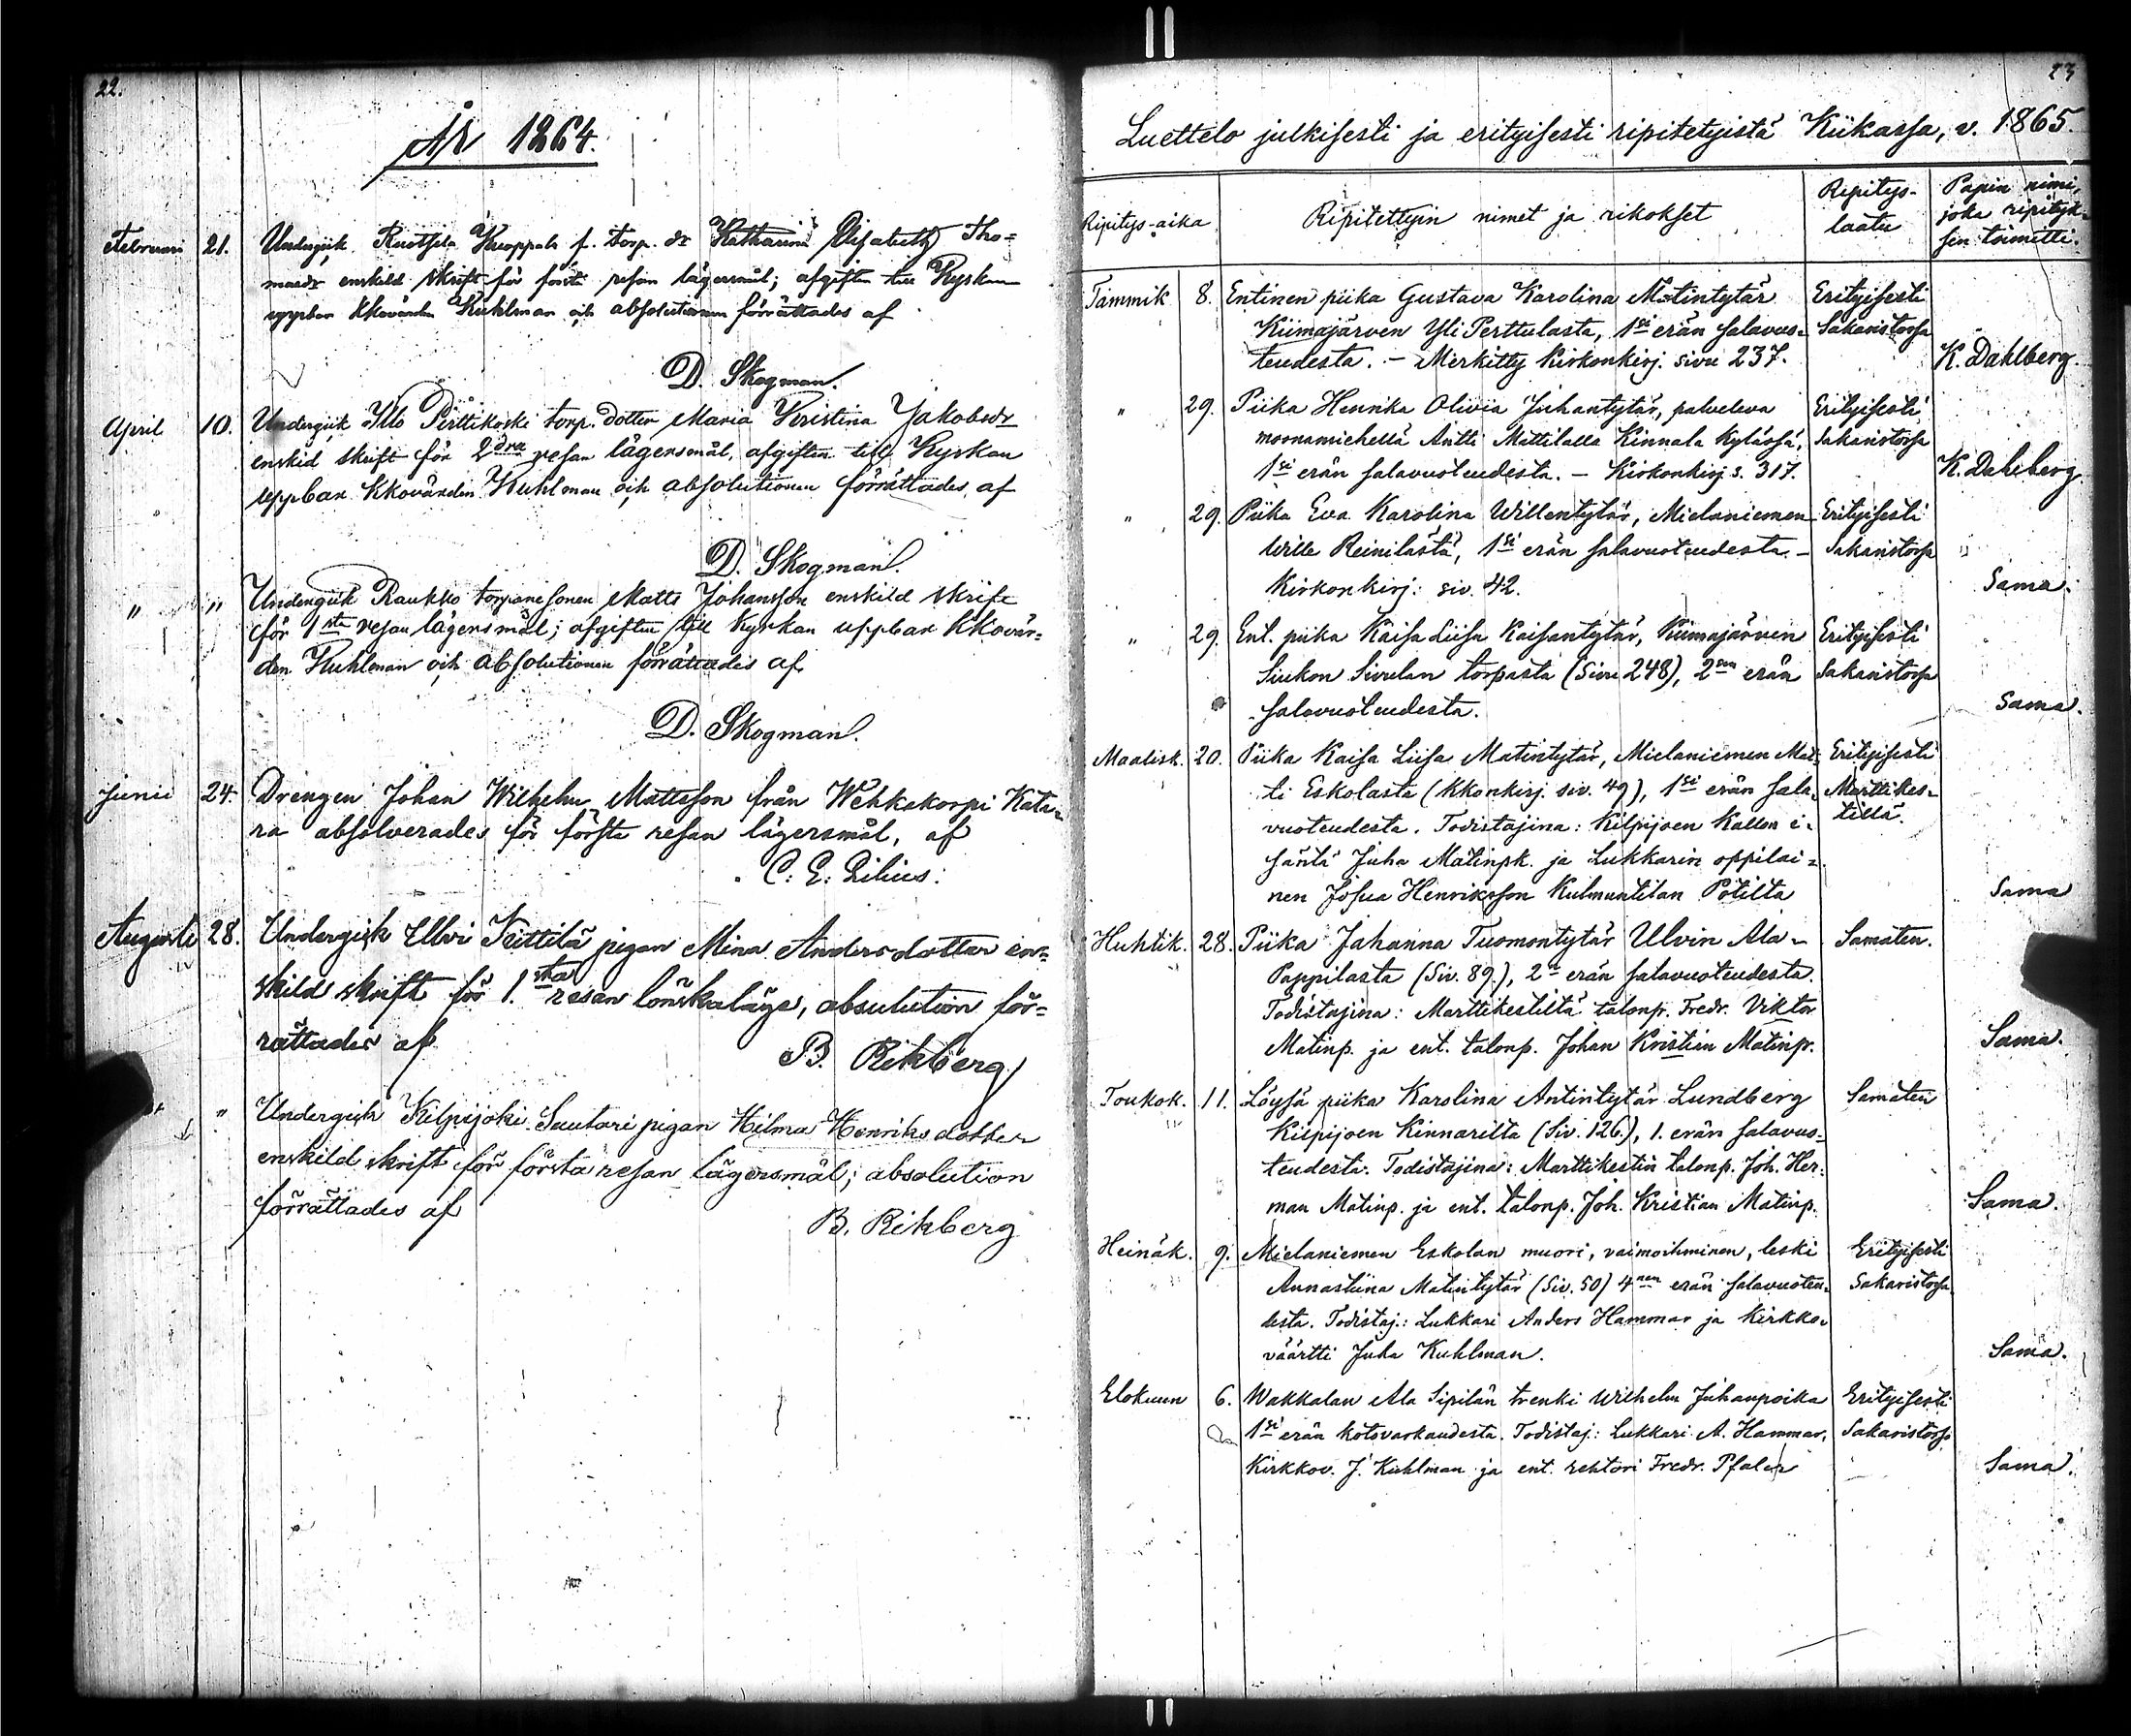 22.
År 1864.
Februari 21. Undergick Ruotsila Kuoppala f. torp. dr Katharina Elisabeth Tho=
masdr enskild skrift för första resan lägersmål; afgiften till Kyrkan
uppbar Kkovärden Kuhlman och absolutionen förrättades af
D. Skogman.
April 10. Undergick Illo Perttikoski torp. dotter Maria Kristina Jakobsdr
enskild skrift för 2dra resan lägersmål, afgiften till Kyrkan
uppbar Kkovärden Kuhlman och absolutionen förrättades af
D. Skogman.
" " Undergick Raukko torparesonen Matts Johansson enskild skrift
för 1sta resan lägersmål; afgiften till Kyrkan uppbar Kkovär=
den Kuhlman och absolutionen förrättades af
D. Skogman.
Junii 24. Drengen Johan Wilhelm Mattsson från Wehkakorpi Kata=
ra absolverades för första resan lägersmål, af
C: E: Lilius:
Augusti 28. Undergick Ellvi Kittilä pigan Mina Andersdotter en=
skild skrift för 1.sta resan lönskaläge, absulution för=
rättades af
B. Rikberg
" Undergick Kilpijoki Suutari pigan Hilma Henriksdotter
enskild skrift för första resan lägersmål; absolution
förrättades af
B. Rikberg
23
Luettelo julkisesti ja erityisesti ripitetyistä Kiikassa, v. 1865.
Ripitys-aika
Ripitettyin nimet ja rikokset
Ripitys-
laatu
Papin nimi,
joka ripityk-
sen toimitti.
Tammik 8. Entinen piika Gustava Karolina Matintytär Erityisesti
Kiimajärven Yli Perttulasta, 1si erän salavuo- Sakaristossa
teudesta. – Merkitty Kirkonkirj. sivu 237. K. Dahlberg.
" 29. Piika Henrika Olivia Juhantytär, palveleva Erityisesti
moonamiehellä Antti Mattilalla Kinnala Kylässä, Sakaristossa
1si erän salavuoteudesta. – Kirkonkirj s. 317. K. Dahlberg
" 29. Piika Eva Karolina Willentytär, Mielaniemen Erityisesti
Wille Reinilästä, 1si erän salavuoteudesta. – Sakaristossa
Kirkonkirj: siv. 42. Sama.
" 29. Ent. piika Kaisa Liisa Kaisantytär, Kiimajärven Erityisesti
Siukon Sivulan torpasta (Sivu 248), 2sen erän Sakaristossa
salavuoteudesta. Sama.
Maalisk. 20. Piika Kaisa Liisa Matintytär, Mielaniemen Mat- Erityisesti
ti Eskolasta (Kkonkirj. siv. 49), 1si erän sala- Marttikes-
vuoteudesta. Todistajina: Kilpijoen Kallon i- tillä.
säntä Juha Matinpk. ja Lukkarin oppilai=
nen Josua Henriksson Kulmuntilan Pötiltä Sama
Huhtik. 28. Piika Johanna Tuomontytär Ulvin Ala- Samaten.
Pappilasta (Siv. 89.), 2n erän salavuoteudesta.
Todistajina: Marttikestiltä talonp. Fredr. Viktor
Matinp. ja ent. talonp. Johan Kristian Matinp. Sama.
Toukok. 11. Löysä piika Karolina Antintytär Lundberg Samaten
Kilpijoen Kinnarilta (Siv. 126.), 1. erän salavuo-
teudesta. Todistajina: Marttikestin talonp. Joh. Her-
man Matinp. ja ent. talonp. Joh. Kristian Matinp. Sama.
Heinäk. 9. Mielaniemen Eskolan muori, vaimoihminen, leski Erityisesti
Annastiina Matintytär (Siv. 50) 4nen erän salavuoteu- Sakaristossa
desta. Todistaj.: Lukkari Anders Hammar ja Kirkko-
väärtti Juha Kuhlman. Sama.
Elokuun 6. Wakkalan Ala Sipilän trenki Wilhelm Juhanpoika Erityisesti
1si erän kotovarkaudesta. Todistaj: Lukkari A. Hammar, Sakaristossa
Kirkkov. J. Kuhlman ja ent. rehtori Fredr. Pfaler Sama.